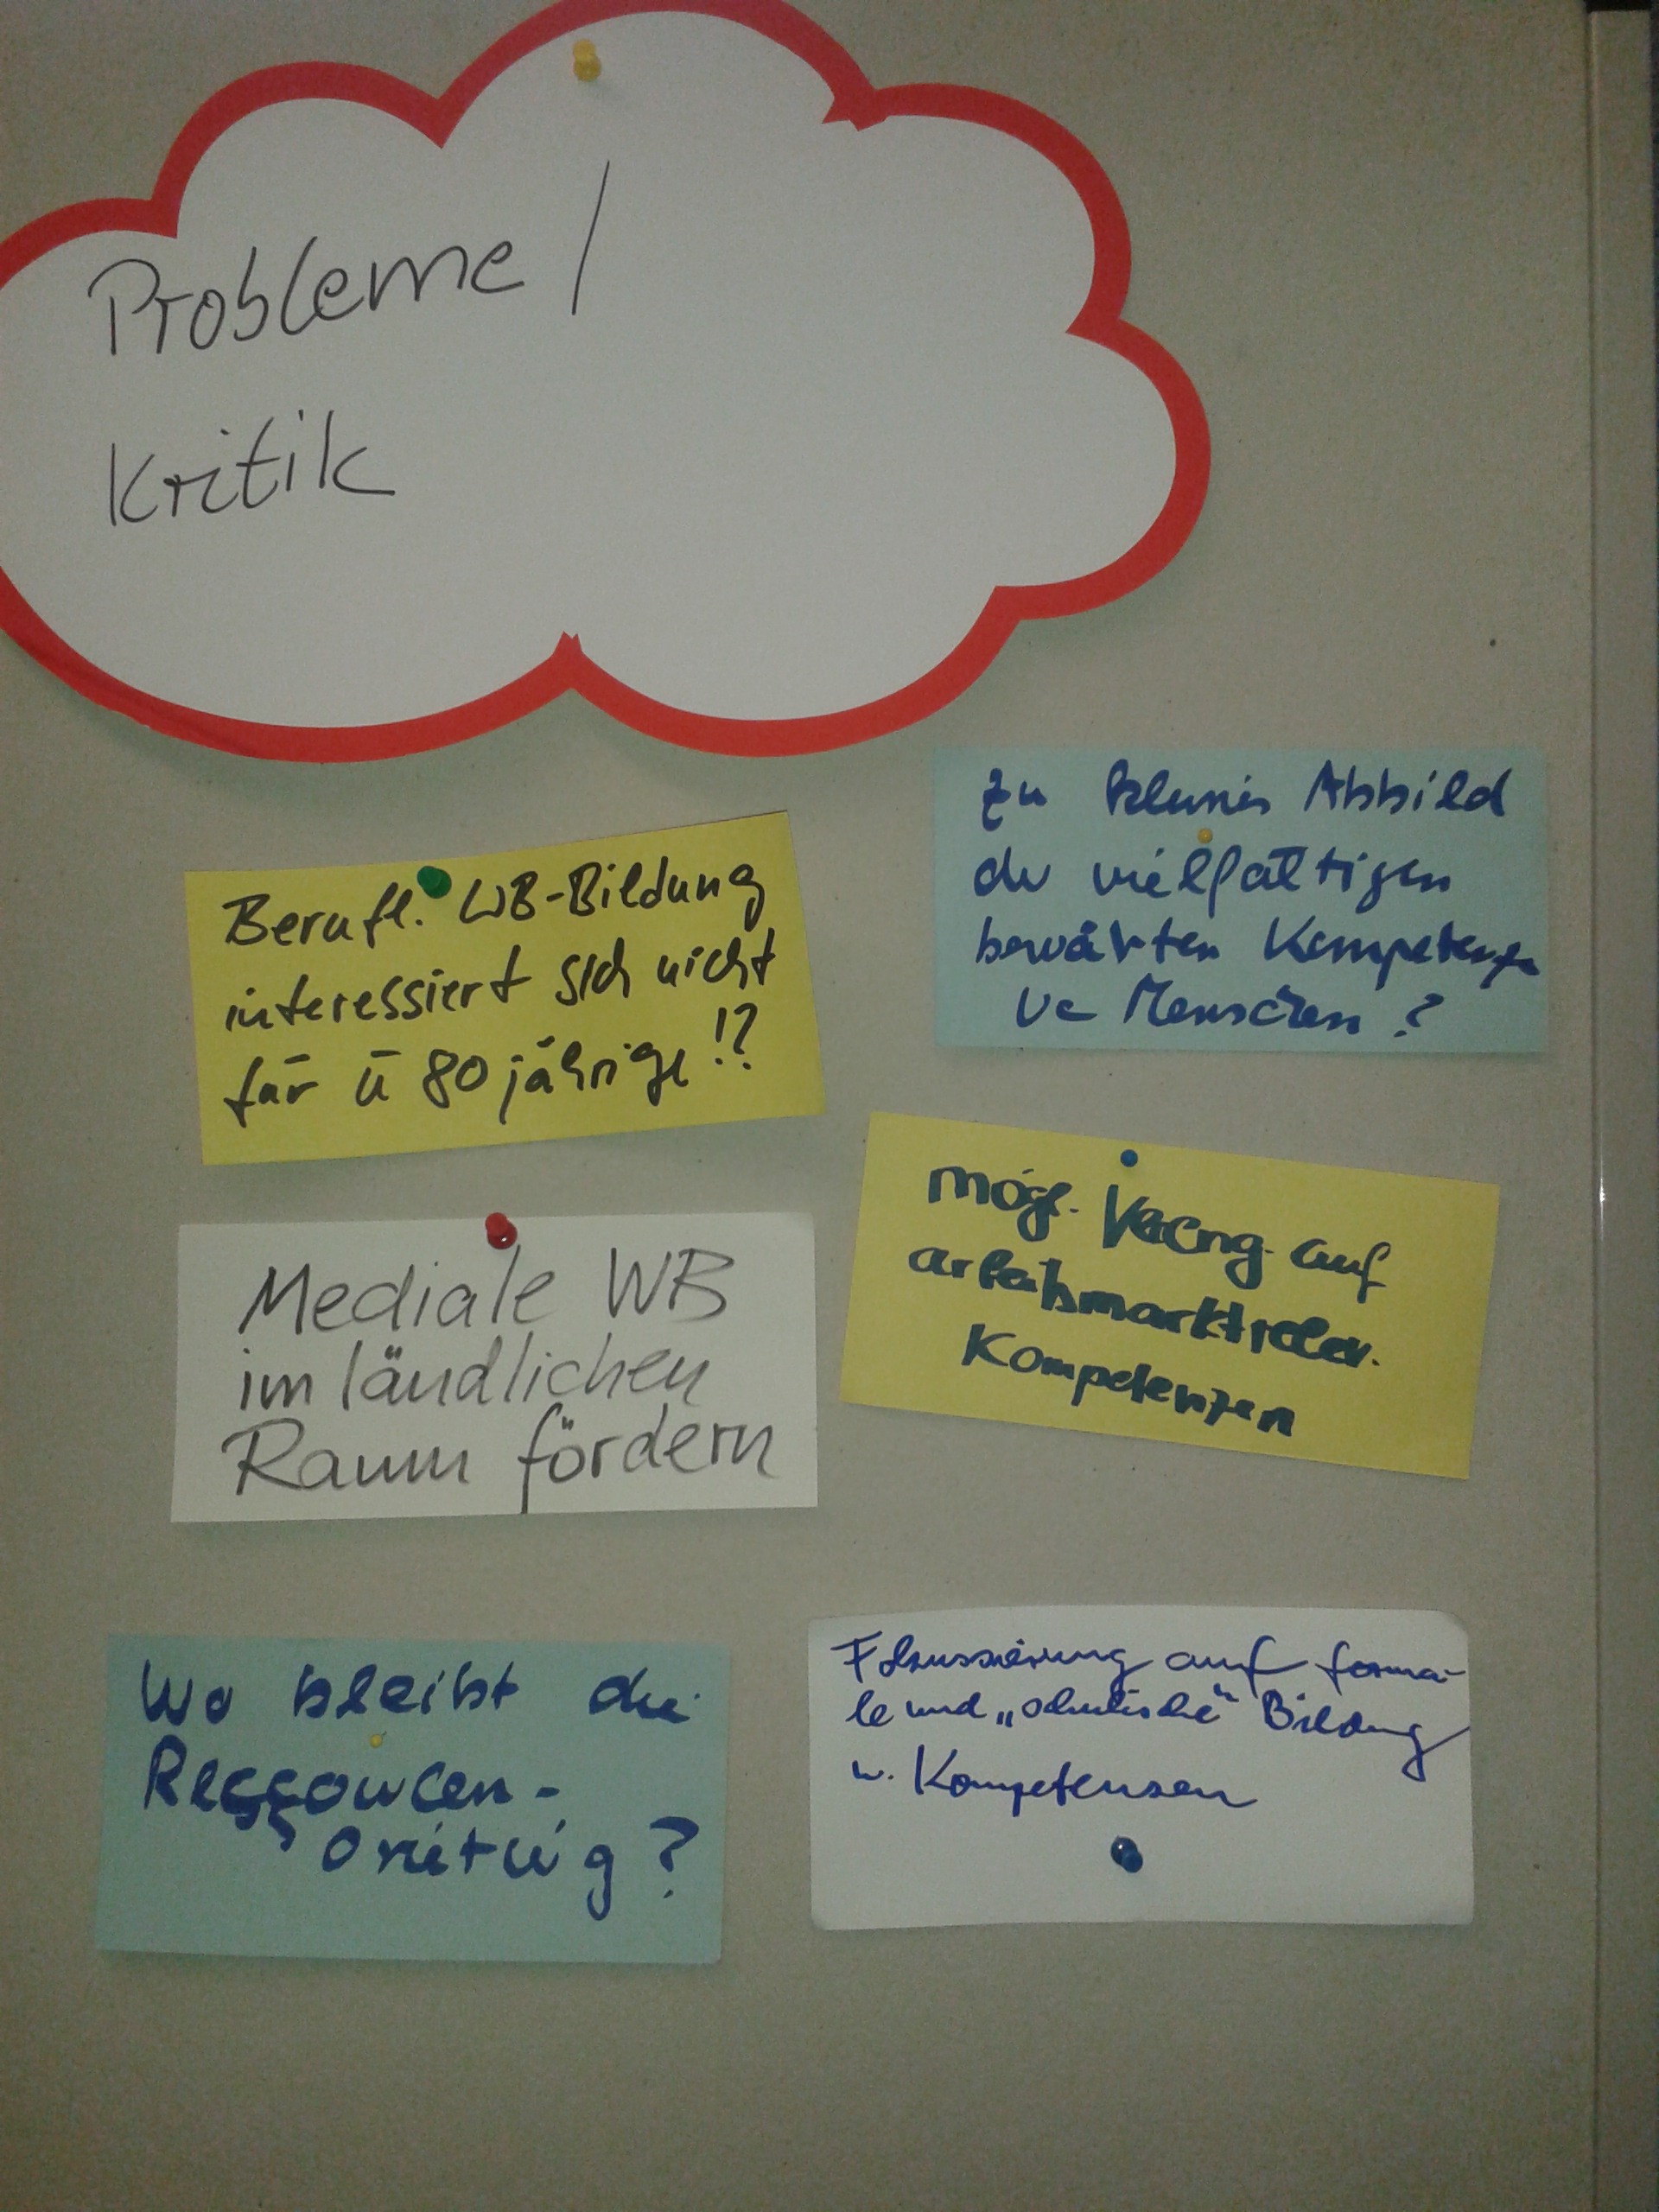 Probleme /
Kritik
Berufl. WB-Bildung
interessiert sich nicht
für ü 80 jährige!?
zu kleines Abbild
der vielfältigen
Kompetenzen
Menschen?
Mediale WB
im ländlichen
Raum fördern
mögl. auf
arbeitsmarktrelev.
Kompetenzen
Wo bleibt die
Ressourcen-
?
Fokussierung auf forma-
le und „schulische“ Bildung
u. Kompetenzen